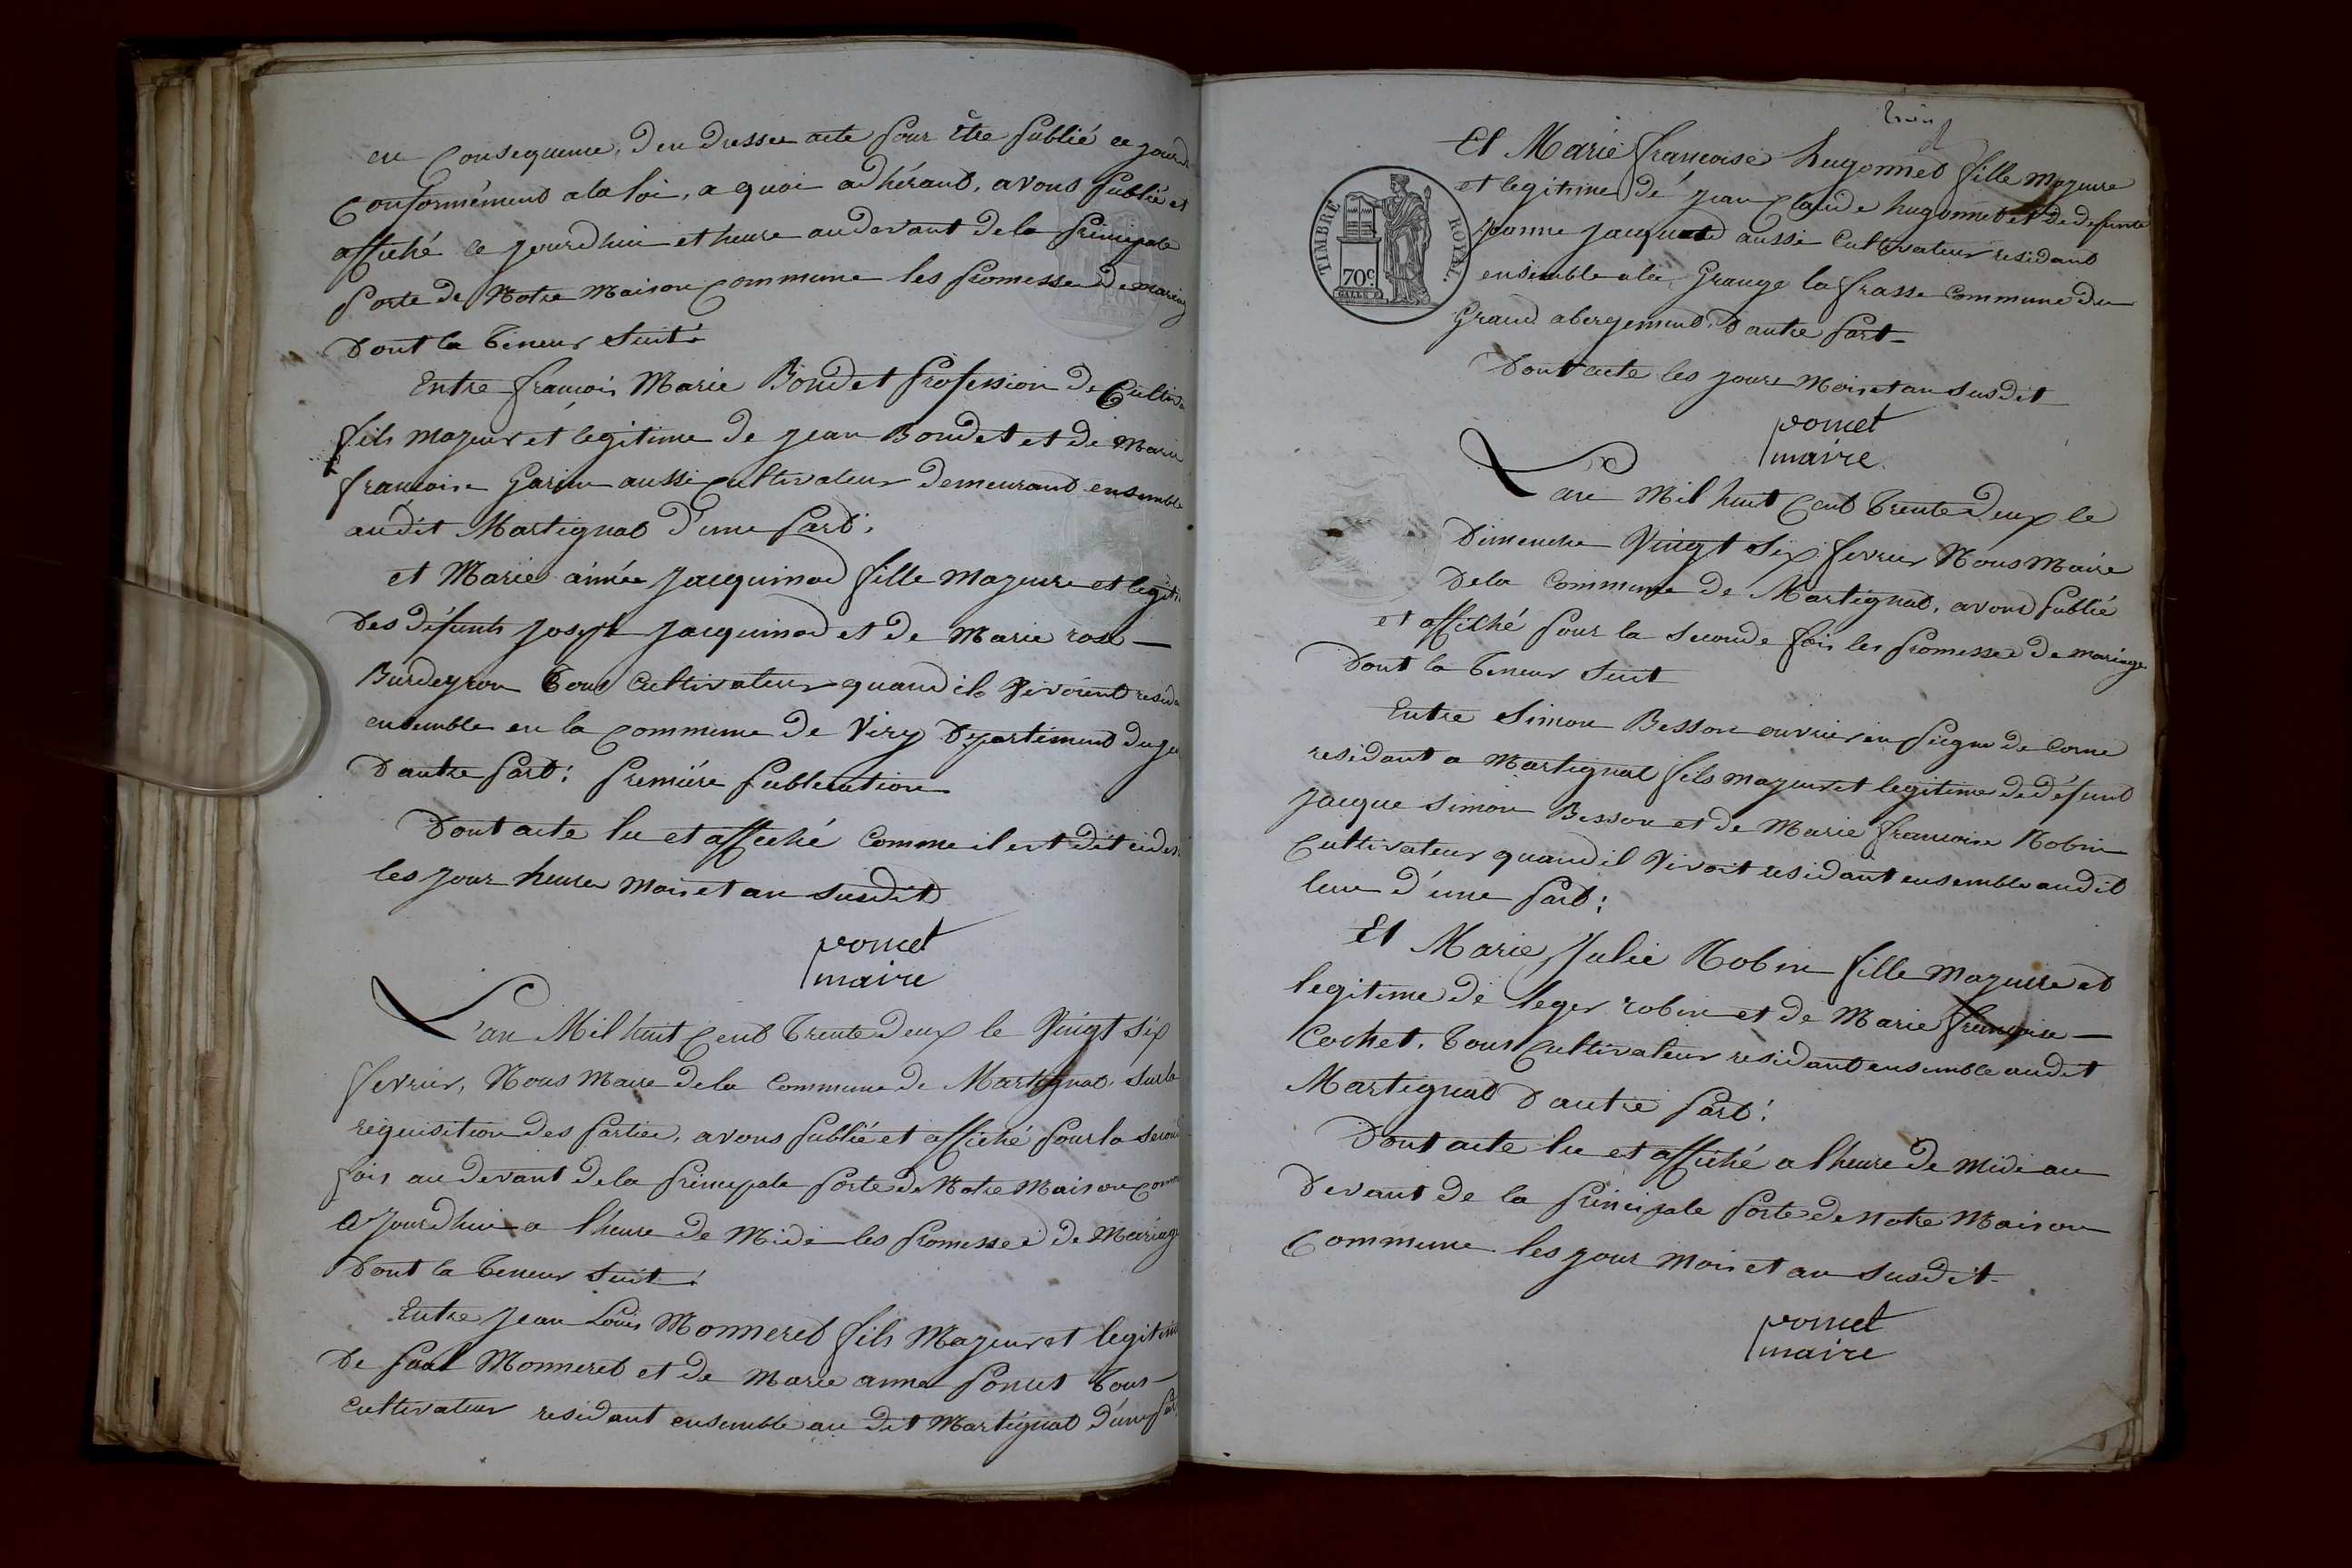 en Consequence, d'en dresser acte pour être publié ce jourd
Conformément a la loi, a quoi adhérant, avons publié et
affiché ce jourdhui et heure audevant de la principale
porte de Notre Maison Commune les promesse de mariag
dont la teneur suit.
Entre françois Marie Bondet profession de Cultiva
fils majeur et legitime de jean Bondet et de Marie
francoise Garin aussi cultivateur demeurant ensemble
audit Martignat d'une part.
et Marie aimée Jacquinod fille majeure et legiti
des défunts joseph jacquinod et de Marie rose —
Burdeyron tous Cultivateur quand ils vivoient resida
ensemble en la Commune de Viry Departement du ju
d'autre part: premiére publication
Dont acte lu et affiché Comme il est dit cides
les jour heure mois et an susdit
poncet
maire
L'an Mil huit Cent trente deux le Vingt six
fevrier, Nous Maire de la Commune de Martignat, sur la
requisition des parties, avons publié et affiché pour la second
fois au devant de la principale porte de Notre Maison Comm
Ajourdhui a l'heure de Midi les promesse de Mariage
dont la teneur suit:
Entre jean Louis Monneret fils Majeur et legitime
de paul Monneret et de Marie anne poncet tous
Cultivateur residant ensemble au dit Martignat d'une part
Et Marie françoise hugonnet fille majeure
et legitime de jean Claude hugonnet et de defunte
jeanne jacquand aussi Cultivateur residant
ensemble a la Grange la frasse Commune du
Grand abergement, d'autre part —
Dont acte les jour Mois et an susdit
poncet
maire
TIMBRE ROYAL.
70c
L'an Mil huit Cent trente deux le
Dimenche Vingt six fevrier Nous Maire
de la Commune de Martignat, avons publié
et affiché pour la seconde fois les promesse de mariage
dont la teneur suit
Entre Simon Besson ouvrier en piegne de Corne
residant a Martignat fils majeur et legitime de défunt
jacque simon Besson et de Marie francoise Robin
Cultivateur quand il vivoit residant ensemble audit
lieu d'une part;
Et Marie Julie Robin fille Majeure et
legitime de leger robin et de Marie françoise —
Cochet, tous Cultivateur residant ensemble audit
Martignat d'autre part.
Dont acte lu et affiché a l'heure de midi au
devant de la principale porte de notre Maison
Commune les jour Mois et an susdit.
poncet
maire